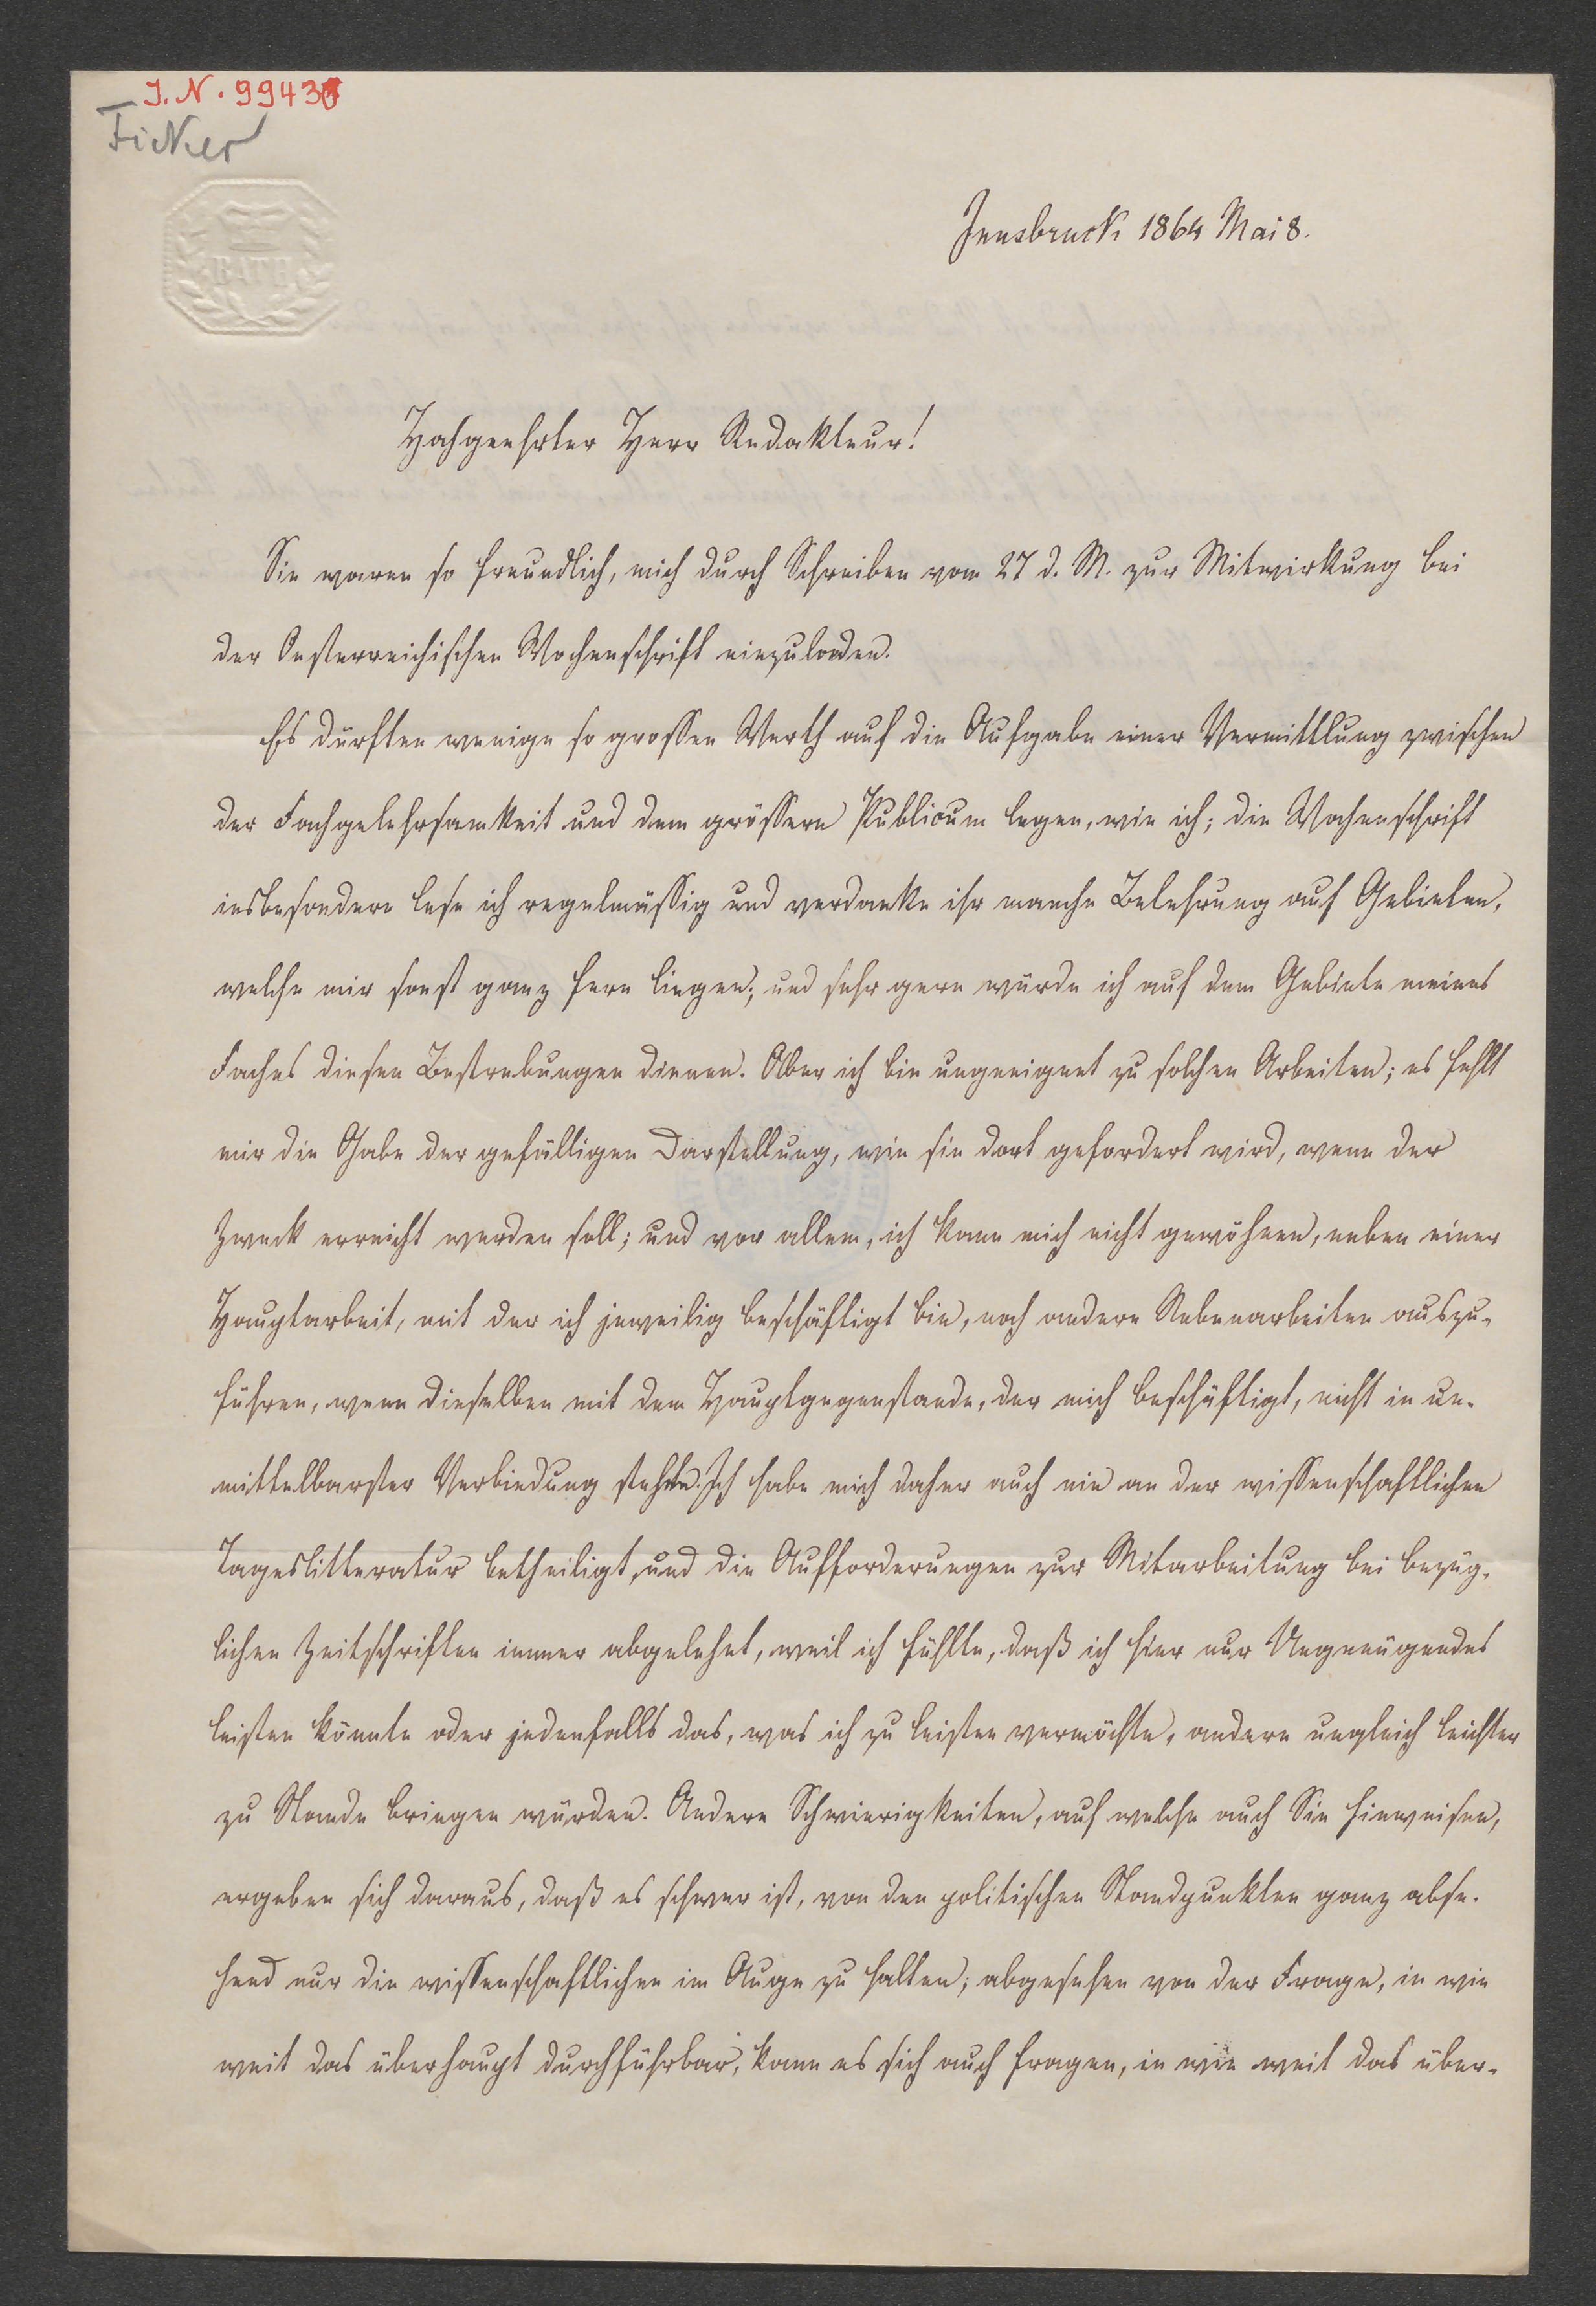 I. N. 99438
Ficker
BATH
Innsbruck 1864 Mai 8.
Hochgeehrter Herr Redakteur!
Sie waren so freundlich, mich durch Schreiben vom 27 d. M. zur Mitwirkung bei
der Oesterreichischen Wochenschrift einzuladen.
Es dürften wenige so grossen Werth auf die Aufgabe einer Vermittlung zwischen
der Fachgelehrsamkeit und dem grössern Publicum legen, wie ich; die Wochenschrift
insbesondere lese ich regelmässig und verdanke ihr manche Belehrung auf Gebieten,
welche mir sonst ganz fern liegen; und sehr gern würde ich auf dem Gebiete meines
Faches diesen Bestrebungen dienen. Aber ich bin ungeeignet zu solchen Arbeiten; es fehlt
mir die Gabe der gefälligen Darstellung, wie sie dort gefordert wird, wenn der
Zweck erreicht werden soll; und vor allem, ich kann mich nicht gewöhnen, neben einer
Hauptarbeit, mit der ich jeweilig beschäftigt bin, noch andere Nebenarbeiten auszu-
führen, wenn dieselben mit dem Hauptgegenstande, der mich beschäftigt, nicht in un-
mittelbarster Verbindung stehen. Ich habe mich daher auch nie an der wissenschaftlichen
Tageslitteratur betheiligt, und die Aufforderungen zur Mitarbeitung bei bezüg-
lichen Zeitschriften immer abgelehnt, weil ich fühlte, daß ich hier nur Ungenügendes
leisten könnte oder jedenfalls das, was ich zu leisten vermöchte, andere ungleich leichter
zu Stande bringen würden. Andere Schwierigkeiten, auf welche auch Sie hinweisen,
ergeben sich daraus, daß es schwer ist, von den politischen Standpunkten ganz abse-
hend nur die wissenschaftlichen im Auge zu halten; abgesehen von der Frage, in wie
weit das überhaupt durchführbar, kann es sich auch fragen, in wie weit das über-